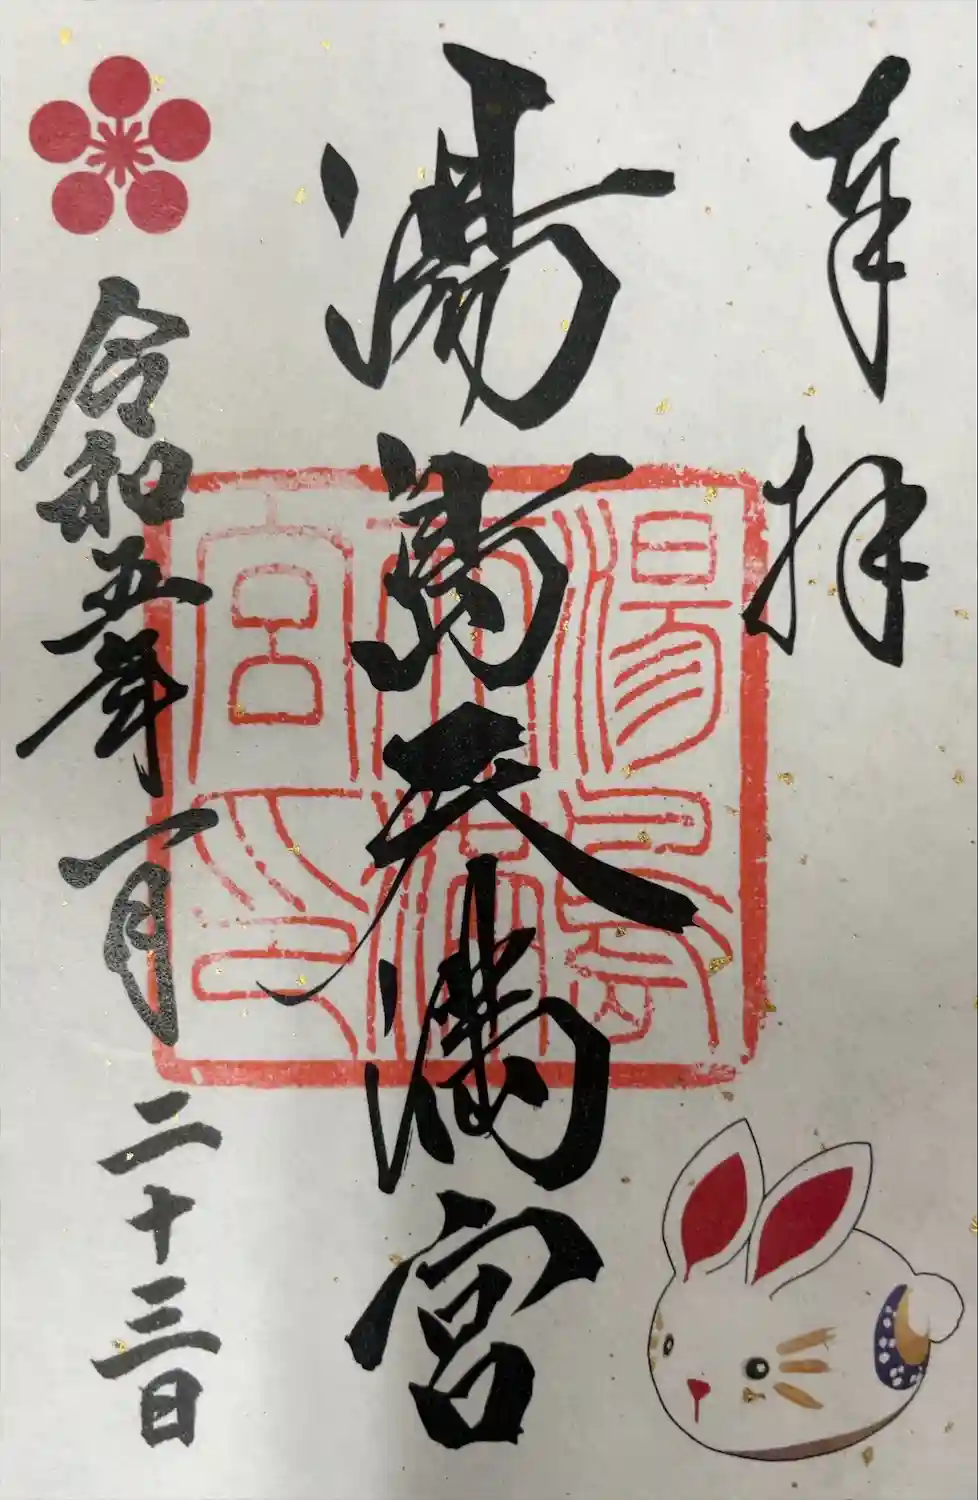 奉拝
湯島天満宮
湯島
天満
宮之印
令和五年一月二十三日